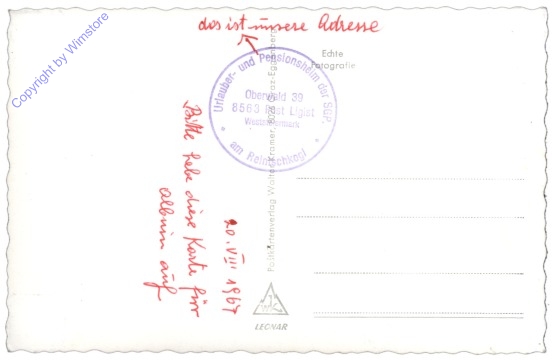 das ist unsere Adresse
Copyright by Wimstore
Echte
Fotografie
Urlauber- und Pensionsheim der SGP.
Oberwald 39
8563 Post Ligist
Weststeiermark
am Reinischkogl
Postkartenverlag Walter Kramer, 8026 Graz-Eggenberg
Bitte hebe diese Karte für
Album auf
20. VIII 1967
LEONAR